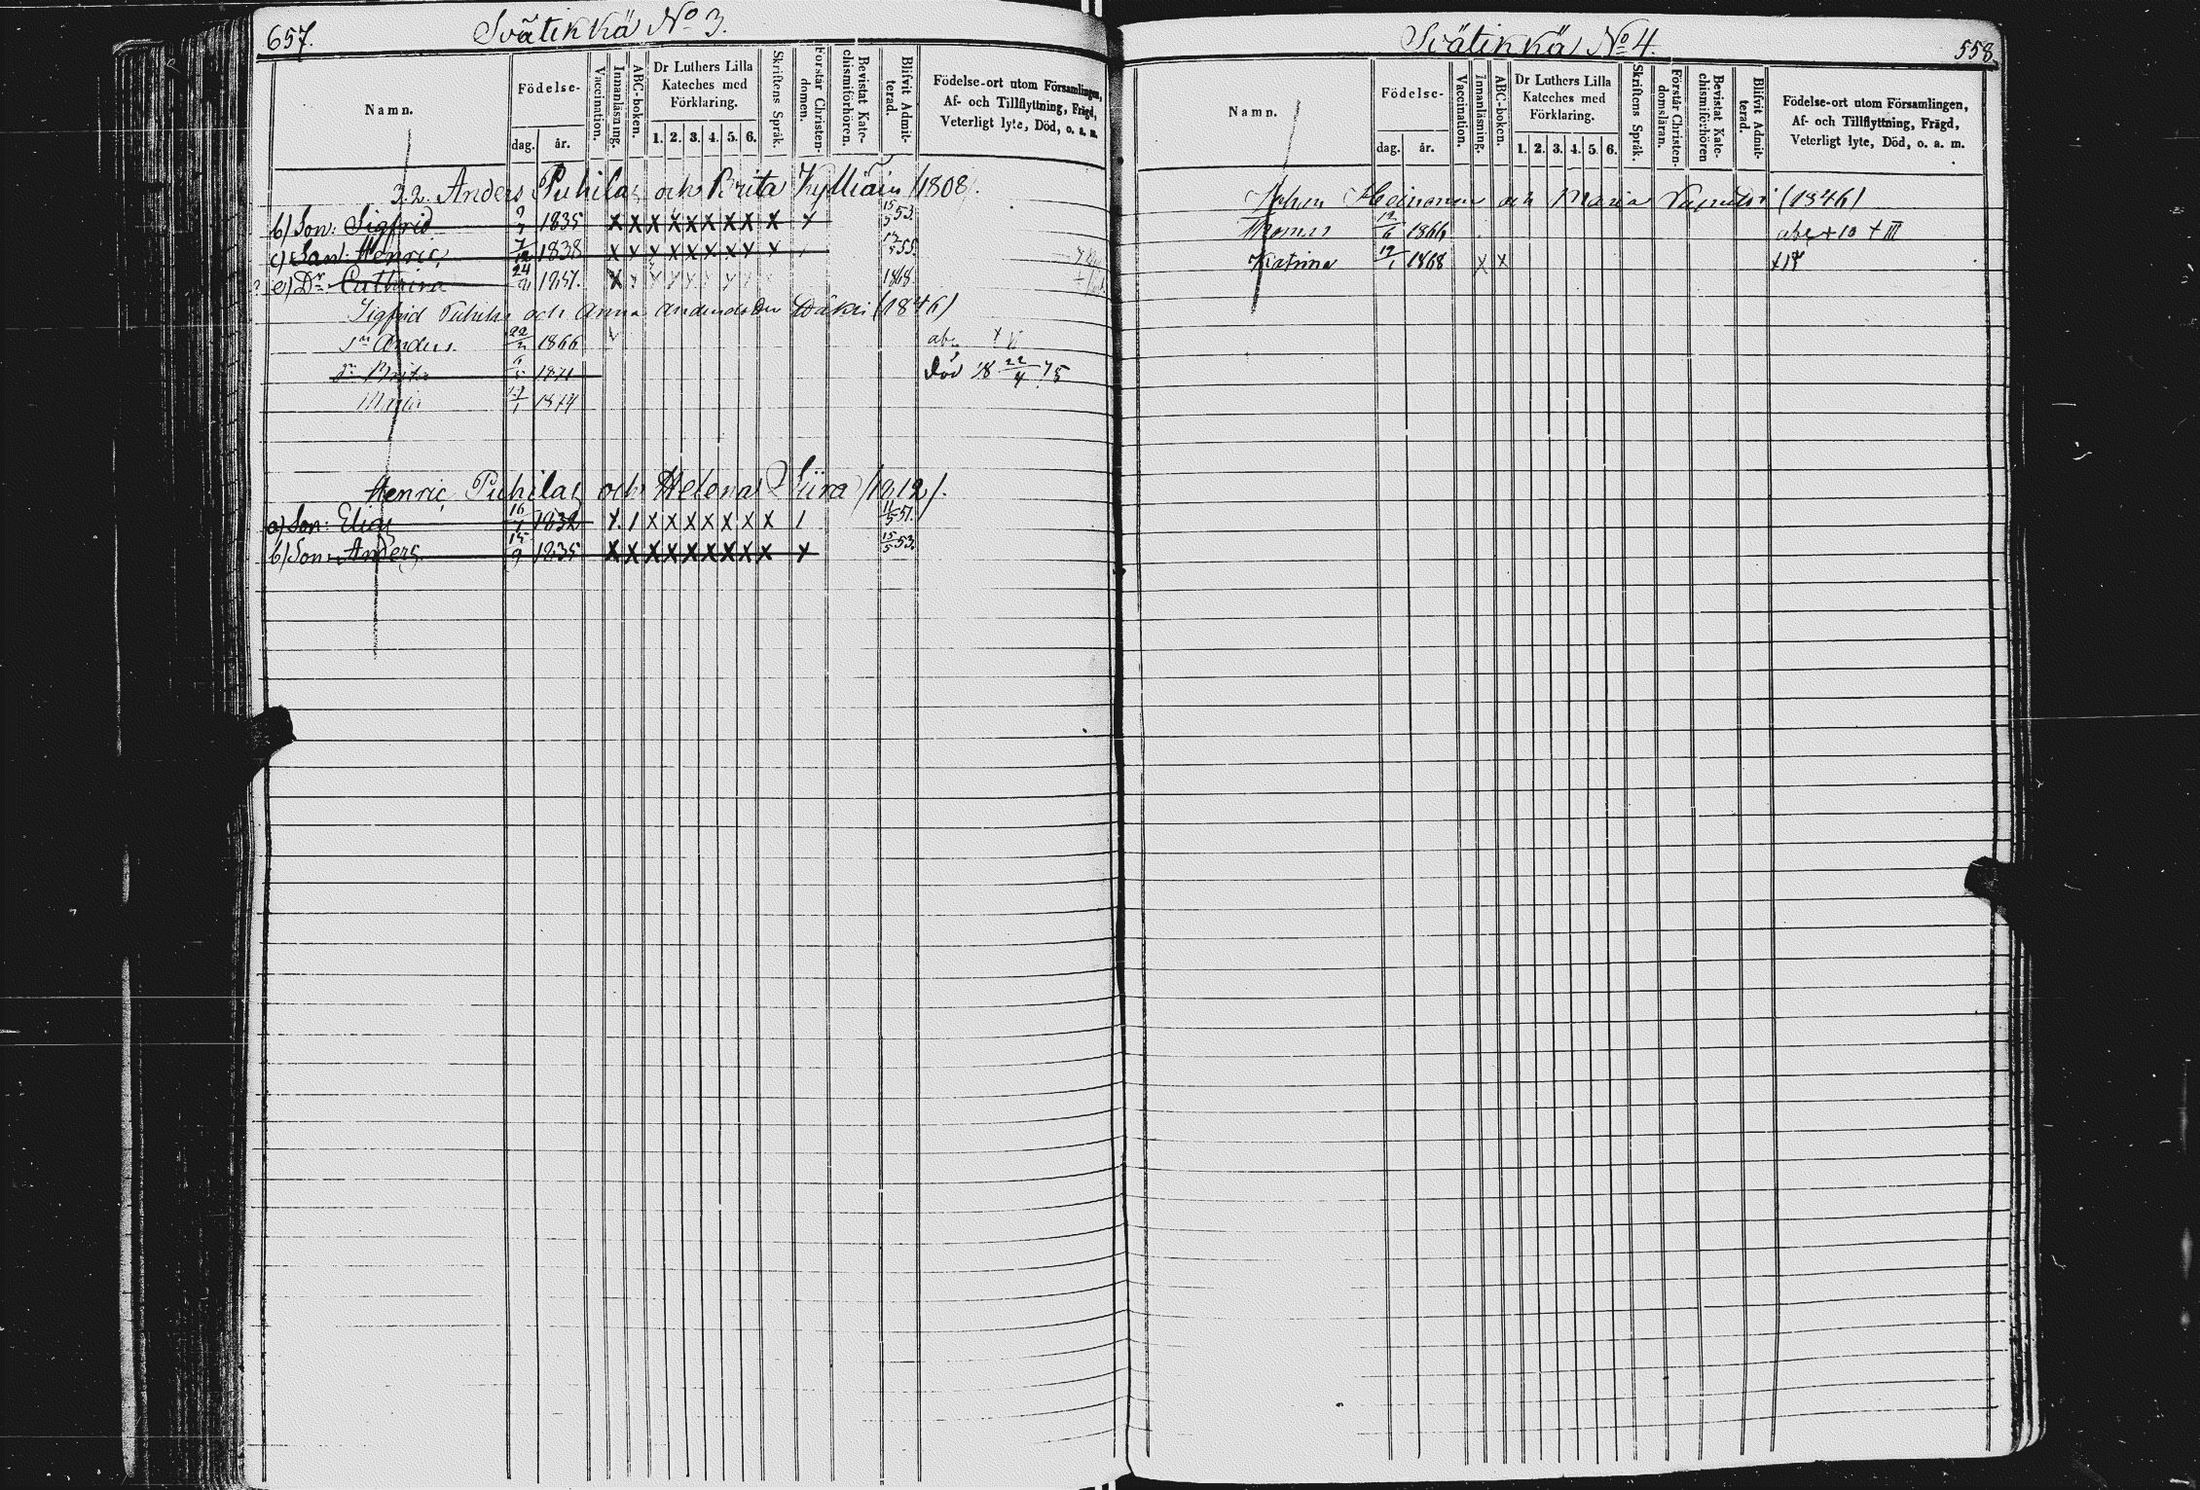 657. Svätikkä No 3.
Namn.
Födelse-
dag. år.
Vaccination.
Innanläsning.
ABC-boken.
Dr Luthers Lilla
Kateches med
Förklaring.
1. 2. 3. 4. 5. 6.
Skriftens Språk.
Förstår Christen-
domen.
Bevistat Kate-
chismiförhören.
Blifvit Admit-
terad.
Födelse-ort utom Församlingen,
Af- och Tillflyttning, Frägd,
Veterligt lyte, Död, o. s. m.
32. Anders Puhilas och Brita Kylliäin /1808/.
b) Son: Sigfrid 1835 X X X X X X X X X X 15/5 53.
c) Son: Henric 7/12 1838 X X X X X X X X X 55.
e) Dr. Cathrina 24 X 1868.
Sigfrid Puhilas och Anna (1846)
Sn Anders 22/2 1866
Dr Brita 1871 Död 18 22/4 75
Maria 1874
Henric Puhilas och Helena Siira /1812/.
a) Son: Elias 16 1832 X / X X X X X X X / 11/5 51.
b) Son: Anders 15/9 1835 X X X X X X X X X X 15/5 53.
Svätikkä No 4. 558.
Namn.
Födelse-
dag. år.
Vaccination.
Innanläsning.
ABC-boken.
Dr Luthers Lilla
Kateches med
Förklaring.
1. 2. 3. 4. 5. 6.
Skriftens Språk.
Förstår Christen-
domsläran.
Bevistat Kate-
chismiförhören
Blifvit Admit-
terad.
Födelse-ort utom Församlingen,
Af- och Tillflyttning, Frägd,
Veterligt lyte, Död, o. a. m.
Johan Heinonen och Maria (1846)
Thomas 12/6 1866 abc + 10 + III
Katrina 19/1 1868 X X